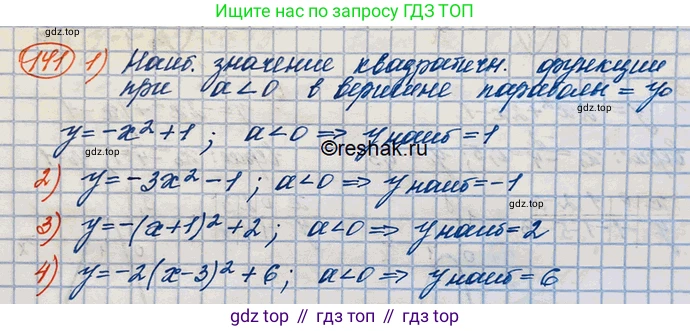 Ищите нас по запросу ГДЗ ТОП
141 1) Наиб. значение квадратичн. функции
при a<0 в вершине параболы = y₀
gdz.top
gdz.top
gdz.top
y=-x²+1; a<0 ⇒ y наиб=1
©reshak.ru
2) y=-3x²-1; a<0 ⇒ y наиб=-1
3) y=-(x+1)²+2; a<0 ⇒ y наиб=2
4) y=-2(x-3)²+6; a<0 ⇒ y наиб=6
gdz.top
gdz.top
gdz.top
gdz top // гдз топ // гдз.топ